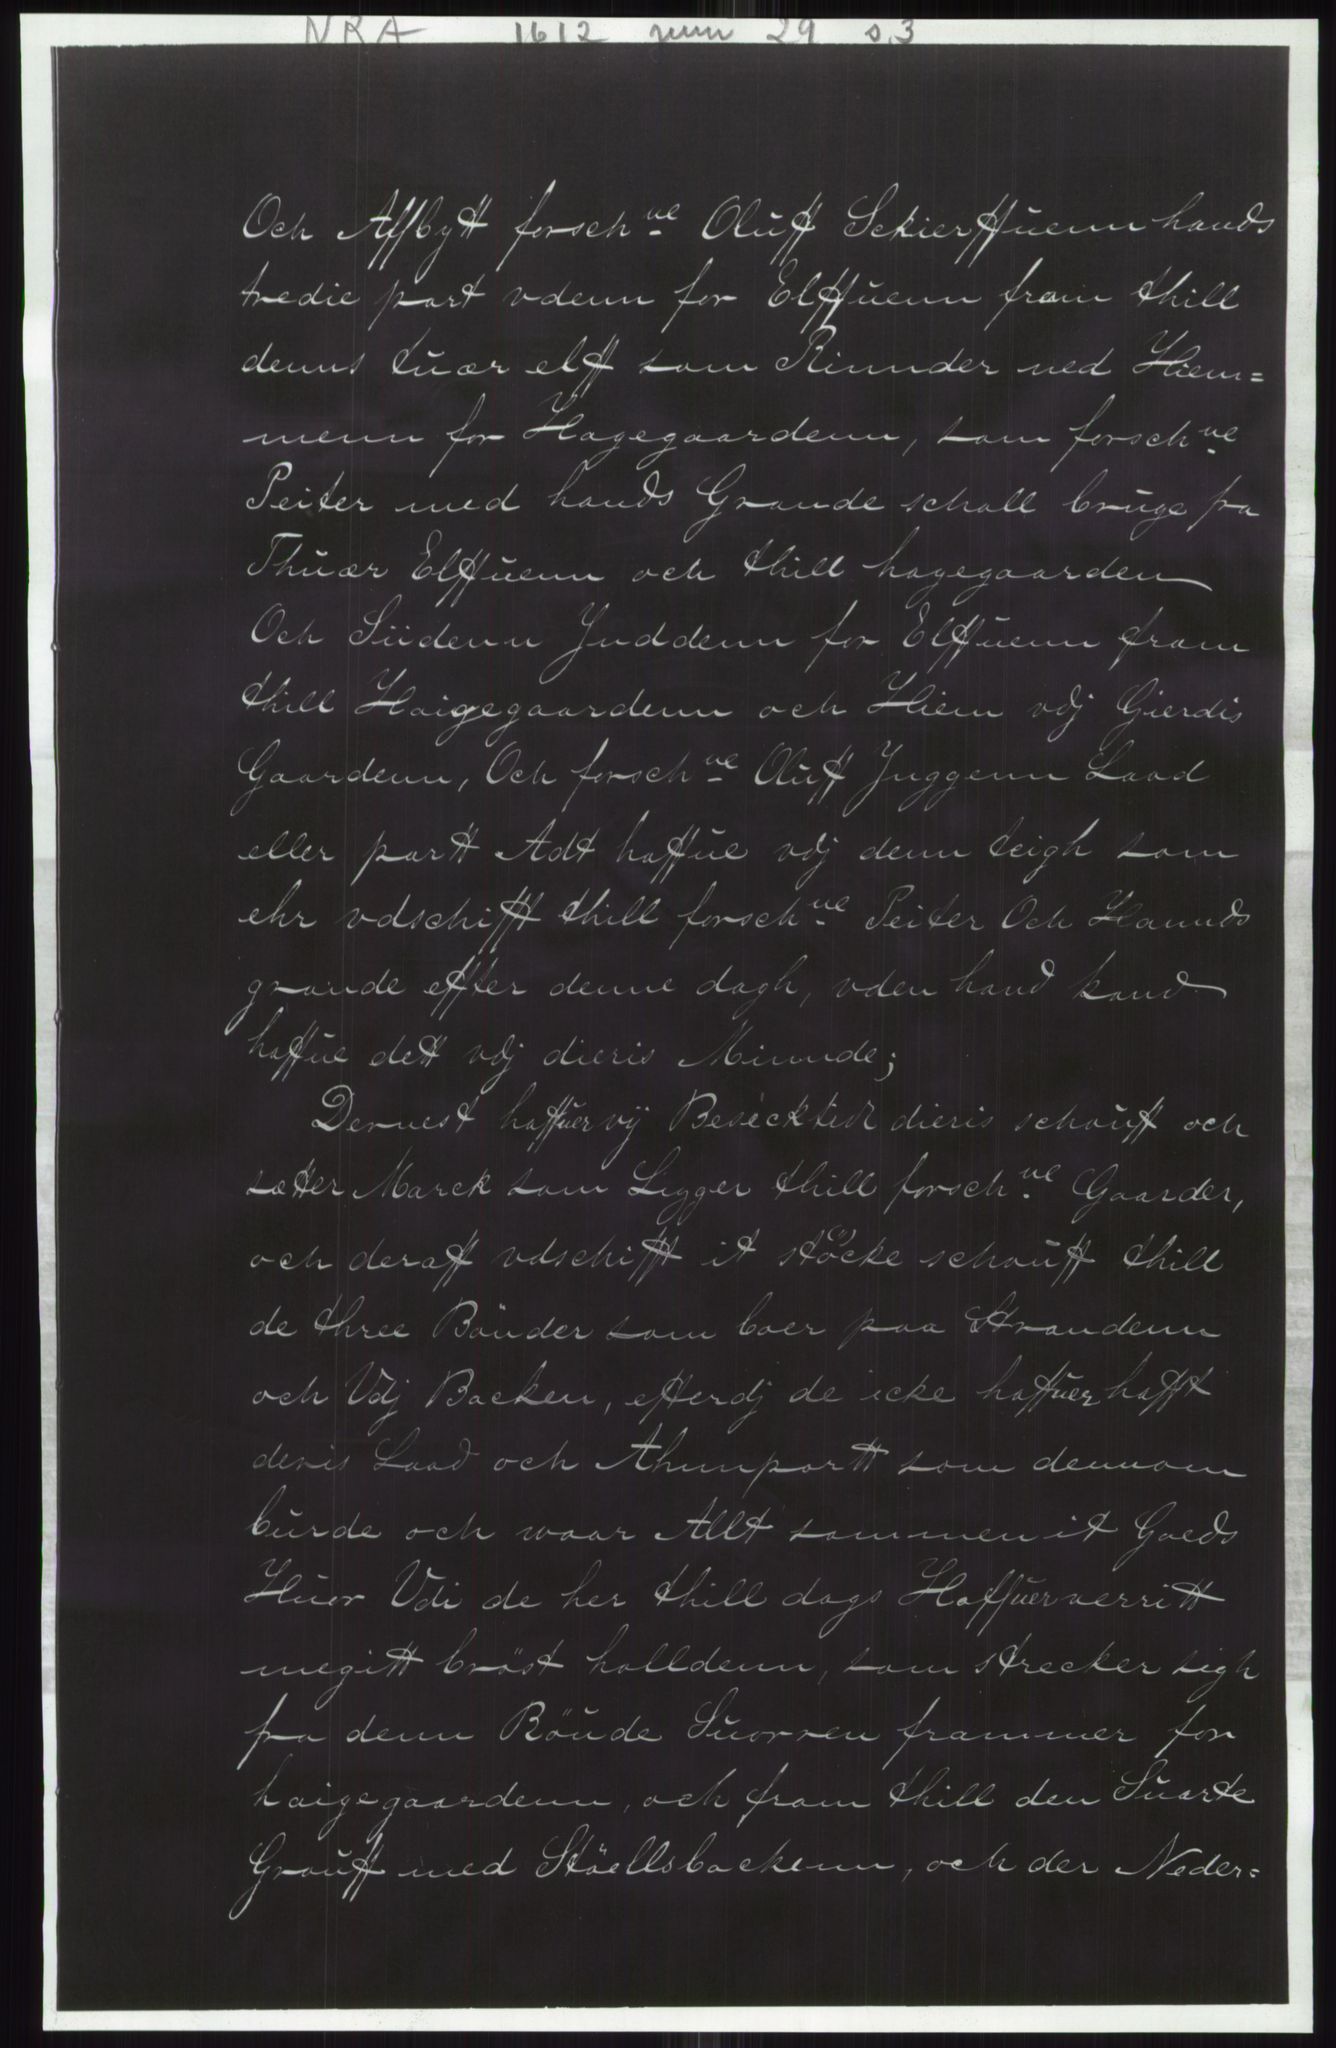 NRA 1612 juni 29 s.3
Och Affbytt forsch ne Oluff Sckierffuenn hands
tredie part vdenn for Elffuenn fram thill
denns tuær elff som Rinnder ned Hiem=
menn for Hagegaardenn, som forsch ne
Peiter med hands Grande schall bruge fra
Thuær Elffuenn och thill hagegaarden
Och Siidenn Jnddenn for Elffuenn fram
thill Haigegaardenn och Hiem vdj Gierdis
Gaardenn, Och forsch ne Oluff Jnggenn Laad
eller partt Adt haffue vdj denn teigh som
ehr vdschifft thill forsch ne Peiter Och Hannds
grande effter denne dagh, vden hand kand
haffue dett vdj dieris Minnde;
Dernest haffuer vij Besecktedt dieris schouff och
sætter Marck som Ligger thill forsch ne Gaarder,
och deraff vdschifft it stöcke schouff thill
de three Bönder som boer paa Strandenn
och Vdj Backen, efterdj de icke haffuer hafft
deris Laad och Ahnnpartt som dennom
burde och waar Allt sammen it Goeds
Huor Vdi de her thill dags Haffuer verritt
megitt bröst halldenn, som strecker sigh
fra denn Röude Suorren frammer for
haigegaardenn, och fram thill den Suarte
Grouff med Stöellsbackenn, och der Neder=